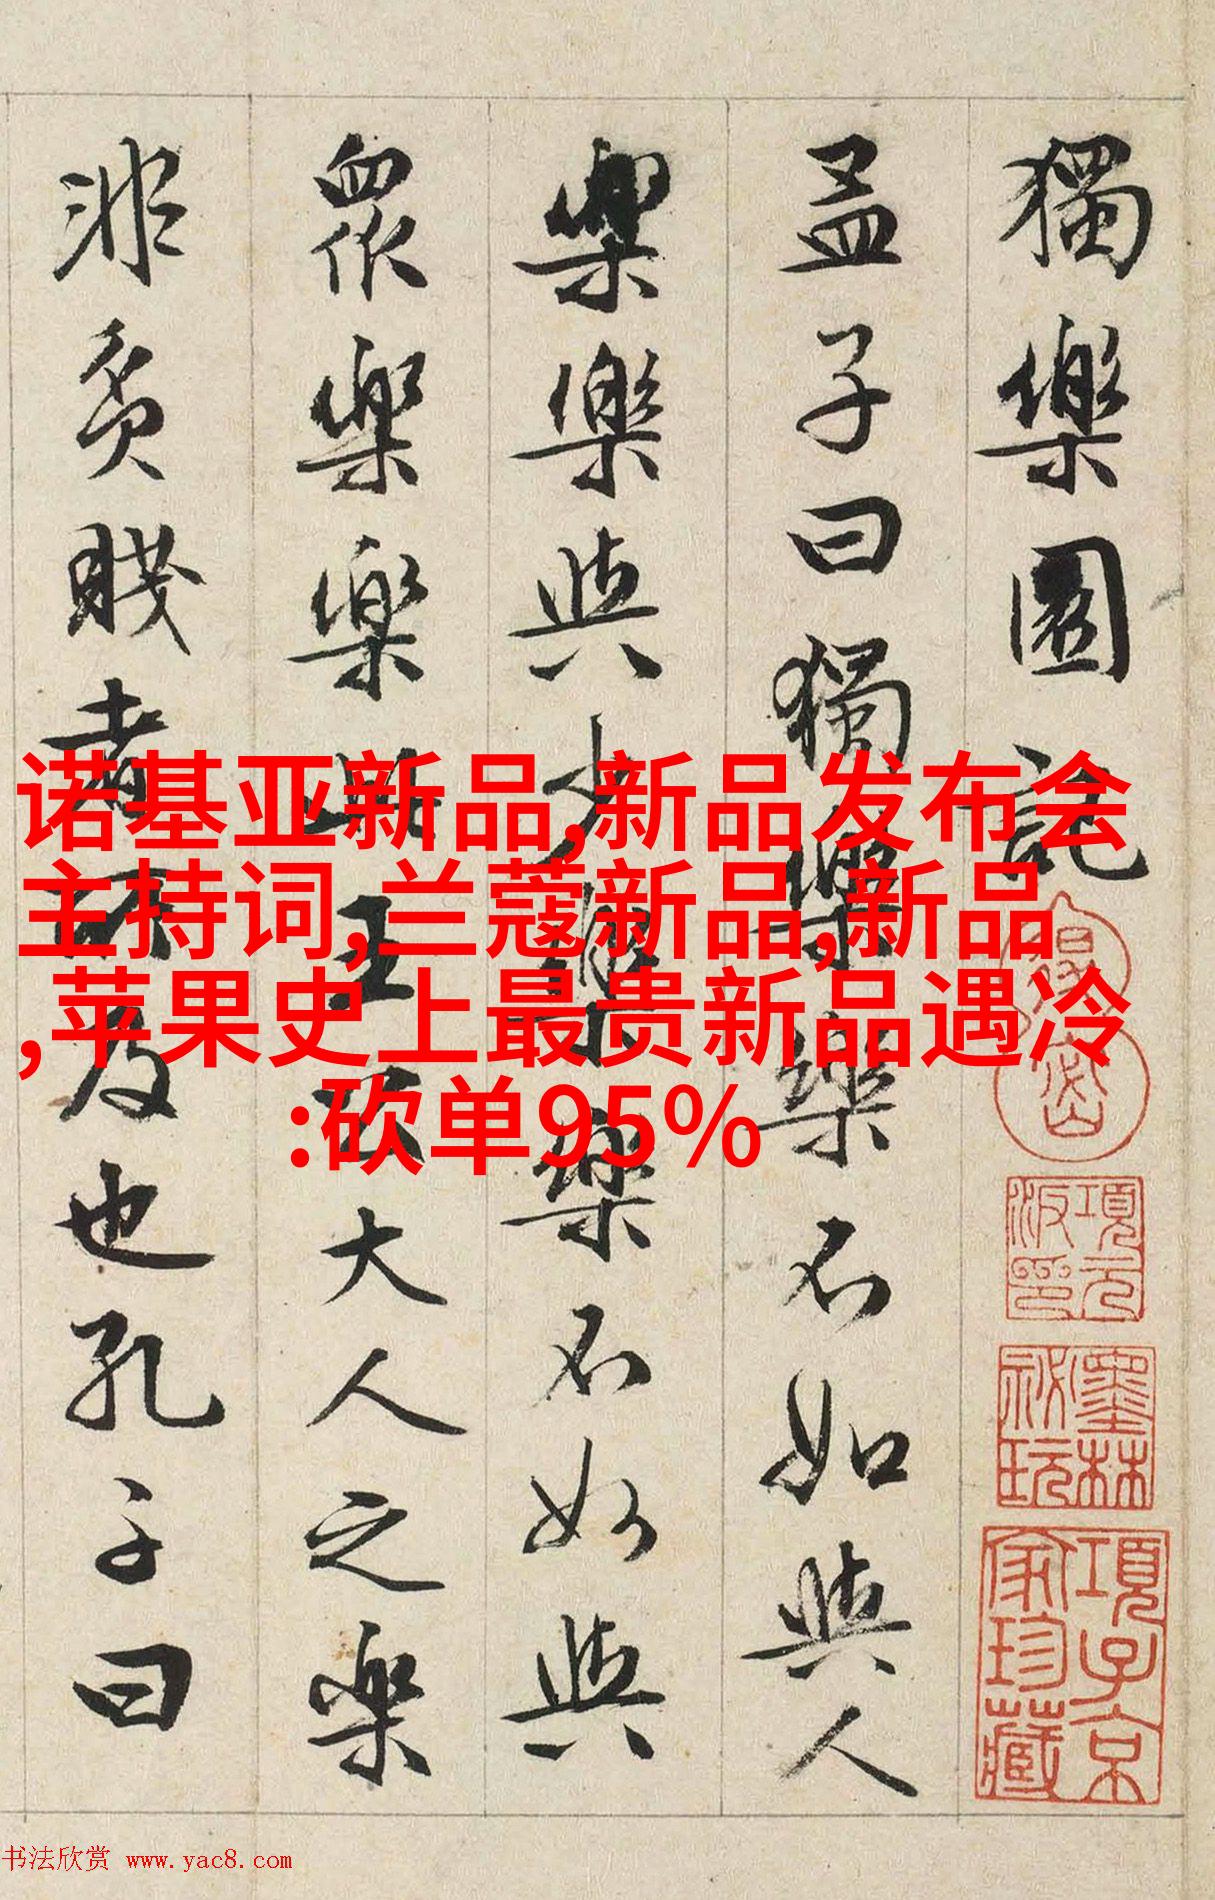 獨樂園記
孟子曰獨樂樂不如與人
樂樂與少樂樂不如與
眾樂樂此王大人之樂
非貧賤者所及也孔子曰
項元汴印
墨林祕玩
項子京家珍藏
诺基亚新品,新品发布会
主持词,兰蔻新品,新品
,苹果史上最贵新品遇冷
:砍单95%
书法欣赏 www.yac8.com